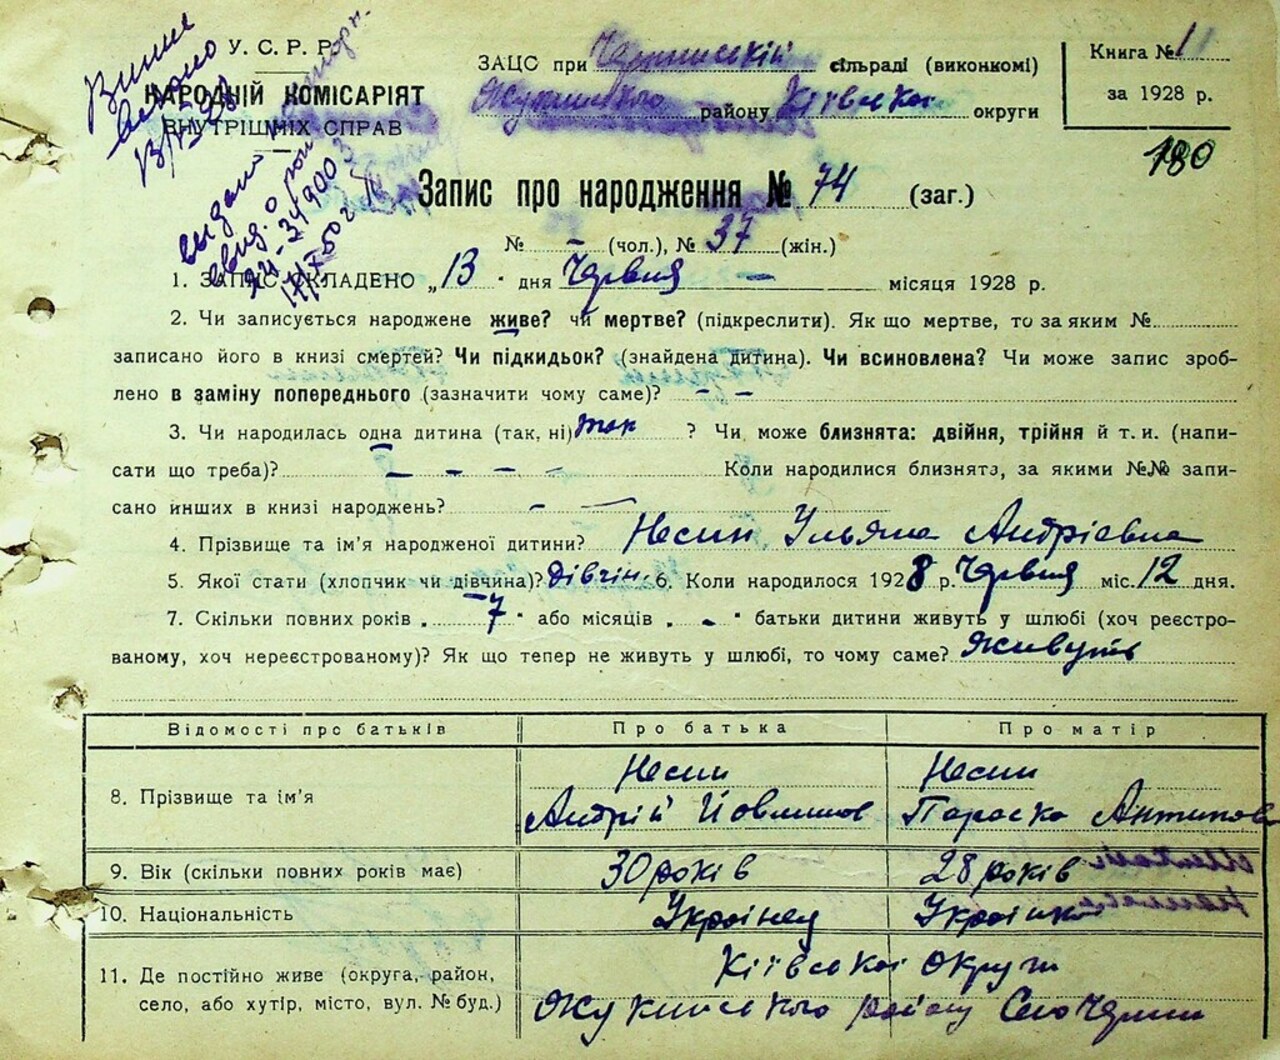 У. С. Р. Р.
НАРОДНІЙ КОМІСАРІЯТ
ВНУТРІШНІХ СПРАВ
ЗАЦС при сільраді (виконкомі)
Жукинського району Київської округи
Книга № 1
за 1928 р.
180
Запис про народження № 74 (заг.)
№ - (чол.), № 37 (жін.)
1. ЗАПИС СКЛАДЕНО „13" дня Червня - місяця 1928 р.
2. Чи записується народжене живе? чи мертве? (підкреслити). Як що мертве, то за яким №
записано його в книзі смертей? Чи підкидьок? (знайдена дитина). Чи всиновлена? Чи може запис зроб-
лено в заміну попереднього (зазначити чому саме)? - -
3. Чи народилась одна дитина (так, ні) так ? Чи може близнята: двійня, трійня й т. и. (напи-
сати що треба)? - - - - Коли народилися близнята, за якими №№ запи-
сано инших в книзі народжень? - -
4. Прізвище та ім'я народженої дитини? Несин Ульяна Андріевна
5. Якої стати (хлопчик чи дівчина)? дівчін. 6. Коли народилося 1928 р. Червня міс. 12 дня.
7. Скільки повних років „ 7 " або місяців „ - " батьки дитини живуть у шлюбі (хоч реєстро-
ваному, хоч нереєстрованому)? Як що тепер не живуть у шлюбі, то чому саме? Живуть
Відомості про батьків Про батька Про матір
8. Прізвище та ім'я Несин Андрій Несин Параска Антипов
9. Вік (скільки повних років має) 30 років 28 років
10. Національність Украінец Украінка
11. Де постійно живе (округа, район,
село, або хутір, місто, вул. № буд.)
Кіівськоі Округи
Жукинського району Село